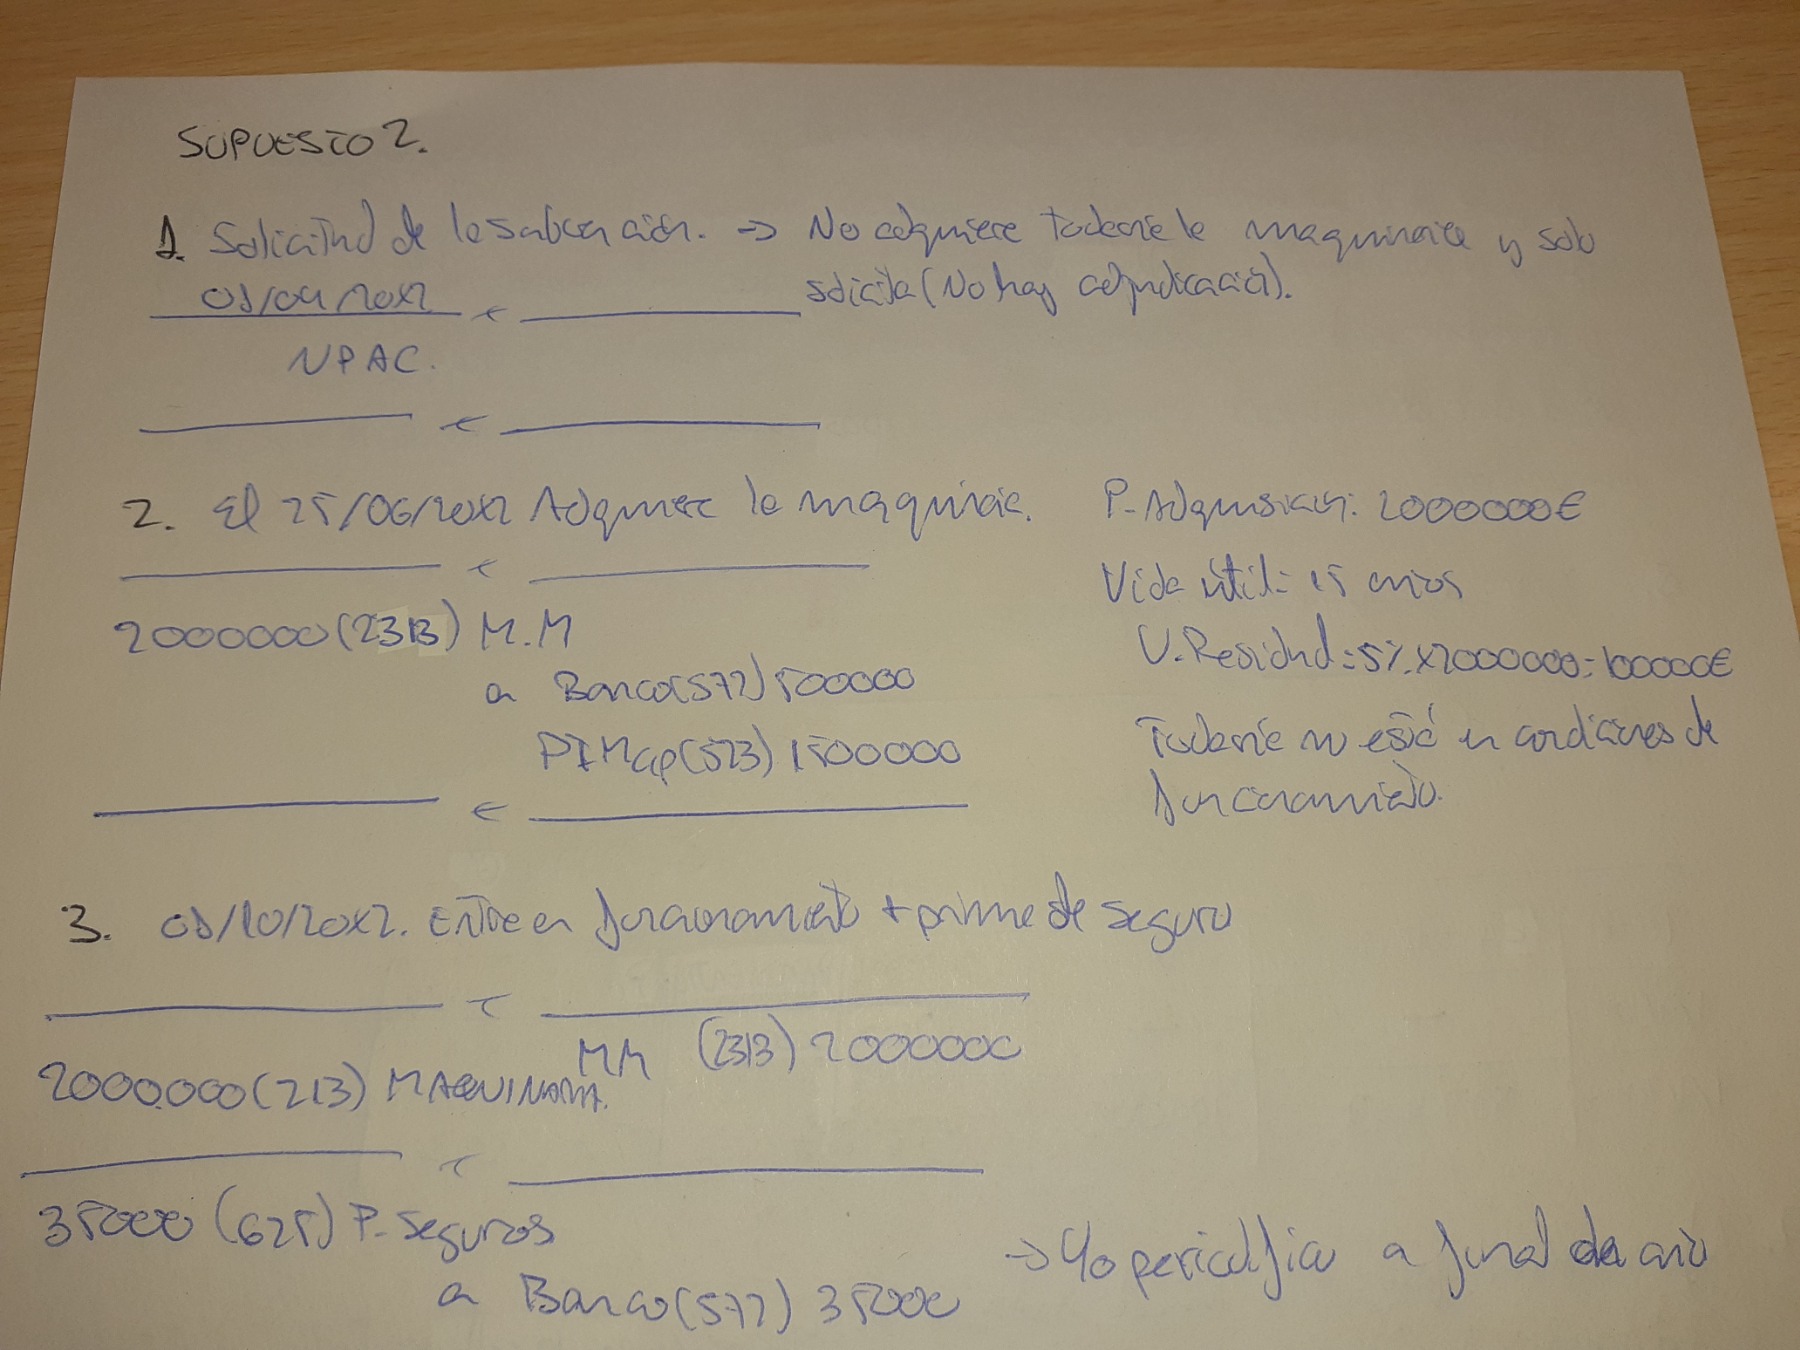 SUPUESTO 2.
1. Solicitud de la subvención. → No adquiere todavía la maquinaria y solo
01/04/20X2 solicita (No hay adjudicación).
NPAC.
2. El 25/06/20X2 Adquiere la maquinaria. P. Adquisición: 2000000€
Vida útil = 15 años
2000000 (2313) M.M V. Residual = 5% x 2000000 = 100000€
a Banco (572) 500000
Todavía no está en condiciones de
PIMcp (523) 1500000
funcionamiento.
3. 01/10/20X2. Entra en funcionamiento + prima de seguro
MM (2313) 2000000
2000.000 (213) MAQUINARIA.
35000 (625) P. Seguros
→ Yo a final de año
a Banco (572) 35000